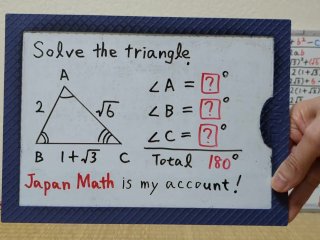 Solve the triangle.
A
2
√6
B 1+√3 C
∠A = ?°
∠B = ?°
∠C = ?°
Total 180°
Japan Math is my account!